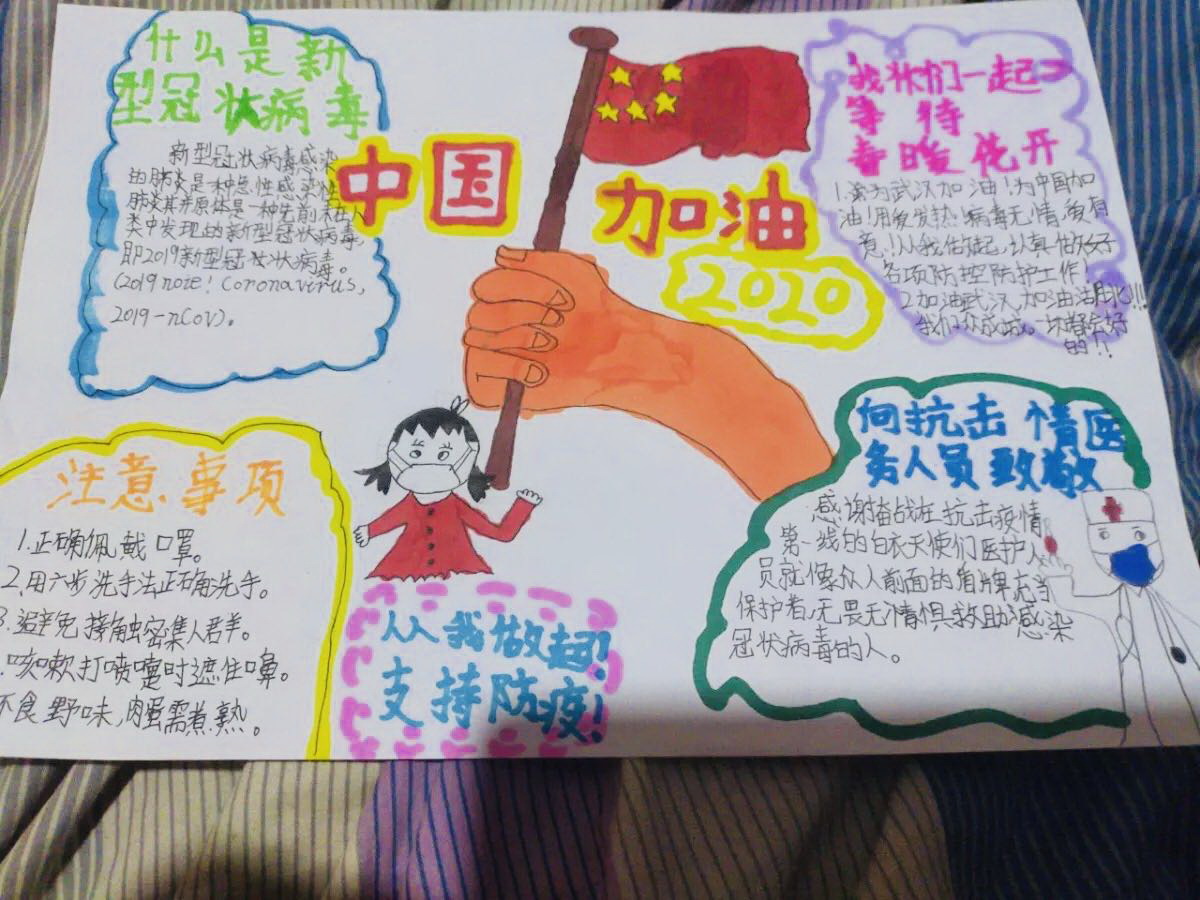 什么是新
型冠状病毒
新型冠状病毒感染
的肺炎是一种急性感染性
肺炎其病原体是一种先前未在人
类中发现的新型冠状病毒,
即2019新型冠状病毒。
(2019 note! Coronavirus,
2019-nCoV)。
中国
加油
2020
我们一起
等待
春暖花开
1.为武汉加油!为中国加
油!用爱发热 病毒无情,爱有
意!从我做起,认真做好
各项防控防护工作!
2.加油武汉,加油湖北!!!
我们众志成城。一切都会好
的!!
注意事项
1.正确佩戴口罩。
2.用六步洗手法正确洗手。
3.避免接触密集人群。
咳嗽打喷嚏时遮住嘴鼻。
不食野味,肉蛋需煮熟。
从我做起!
支持防疫!
向抗击情医
务人员致敬
感谢奋战在抗击疫情
第一线的白衣天使们医护人
员就像众人前面的盾牌充当
保护者,无畏无惧救助感染
冠状病毒的人。